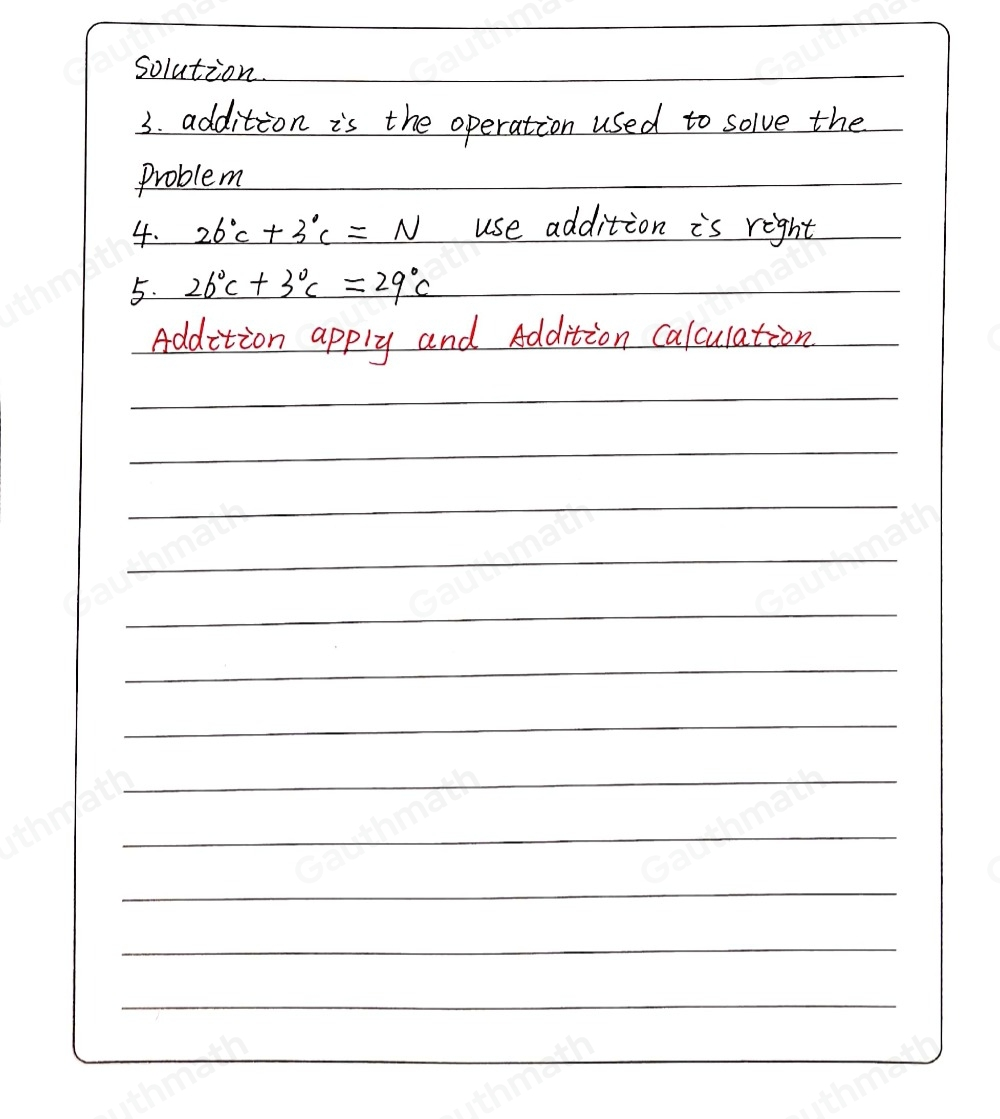 Solution.
3. addition is the operation used to solve the
Problem
4. 26°c + 3°c = N use addition is right
5. 26°c + 3°c = 29°c
Addition apply and Addition Calculation.
Gauthmath